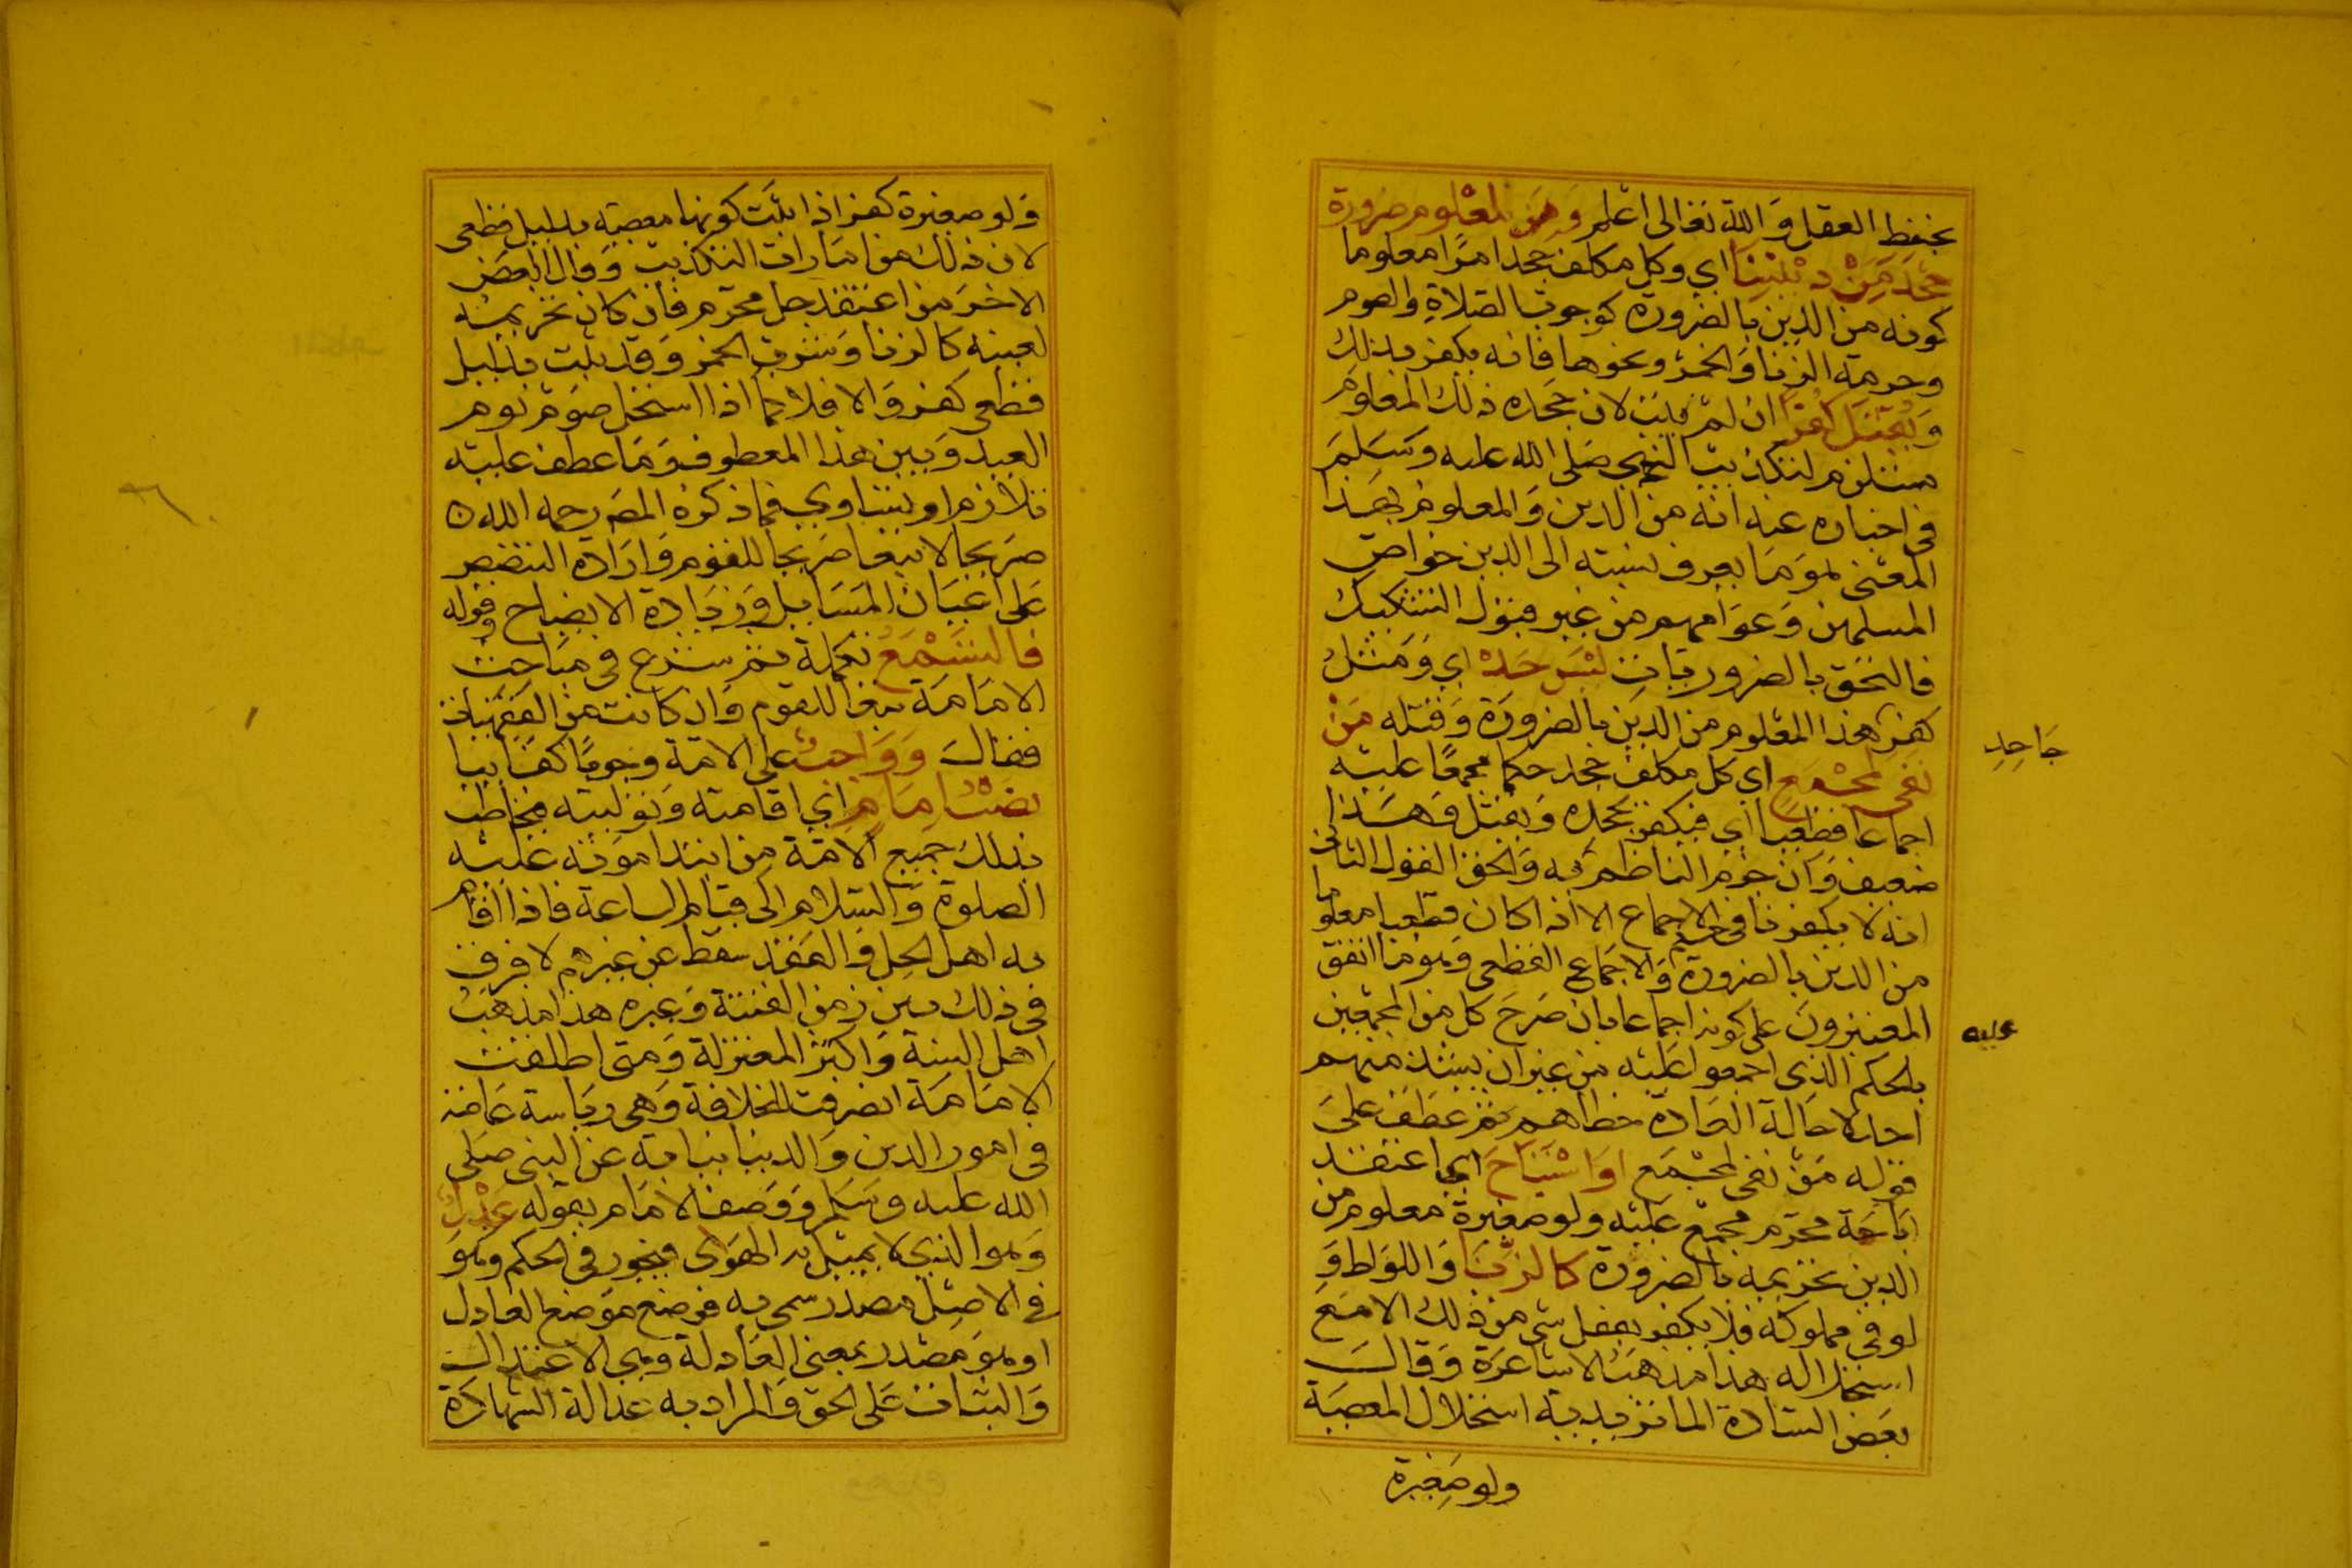 بحفظ العقل والله تعالى اعلم ومن لمعلوم ضرورة
جحد من ديننا اي وكل مكلف جحد امرا معلوما
كونه من الدين بالضرورة كوجوب الصلاة والصوم
وحرمة الزنا والخمر ونحوها فانه يكفر بذلك
ويقتل كفرا ان لم يتب لان جحده ذلك المعلوم
مستلزم لتكذيب النبي صلى الله عليه وسلم
في اخباره عنه انه من الدين والمعلوم بهذا
المعنى هو ما يعرف نسبته الى الدين خواص
المسلمين وعوامهم من غير قبول التشكيك
فالتحق بالضروريات ليس حد اي ومثل
كفر هذا المعلوم من الدين بالضرورة وقتله من
جاحد
نفى لمجمع اي كل مكلف جحد حكما مجمعا عليه
اجماعا قطعيا اي فيكفر بجحده ويقتل وهذا
ضعيف وان جزم الناظم به والحق القول الثاني
انه لا يكفر نافي حكم الاجماع الا اذا كان قطعيا معلوما
من الدين بالضرورة والاجماع القطعي وهو ما اتفق
المعتبرون على كونه اجماعا بان صرح كل من المجمعين
عليه
بالحكم الذي اجمعوا عليه من غير ان يشذ منهم
احد لاحالة العادة خطاهم ثم عطف على
قوله من نفى لمجمع او استباح اي اعتقد
اباحة محرم مجمع عليه ولو صغيرة معلوم من
الدين تحريمه بالضرورة كالزنا واللواط و
لو في مملوكه فلا يكفر بفعل شي من ذلك الا مع
استحلاله هذا مذهب الاشاعرة وقال
بعض السادة الماتريدية استحلال المعصية
ولو صغيرة
ولو صغيرة كفر اذا ثبت كونها معصية بدليل قطعي
لان ذلك من امارات التكذيب وقال البعض
الاخر من اعتقد حل محرم فان كان تحريمه
لعينه كالزنا وشرب الخمر وقد ثبت بدليل
قطعي كفر والا فلا كما اذا استحل صوم يوم
العيد وبين هذا المعطوف وما عطف عليه
تلازم او تساوي فما ذكره المص رحمه الله
صريحا لا تبعا صريحا للقوم وارادة التنصيص
على اعيان المسايل وزيادة الايضاح وقوله
فالتسمع تكملة ثم شرع في مباحث
الامامة تبعا للقوم وان كانت من الفقهيات
فقال وواجب على الامة وجوبا كفاييا
نصب امام اي اقامته وتوليته فيخاطب
بذلك جميع الامة من ابتدا موته عليه
الصلوة والسلام الى قيام الساعة فاذا اقام
به اهل الحل والعقد سقط عن غيرهم لا فرق
في ذلك بين زمن الفتنة وغيره هذا مذهب
اهل السنة واكثر المعتزلة ومتى اطلقت
الامامة انصرفت للخلافة وهي رياسة عامة
في امور الدين والدنيا نيابة عن النبي صلى
الله عليه وسلم ووصف الامام بقوله عدل
وهو الذي لا يميل به الهوى فيجور في الحكم وهو
في الاصل مصدر سمي به فوضع موضع العادل
او هو مصدر بمعنى العادلة وهي الاعتدال
والثبات على الحق والمراد به عدالة الشهادة